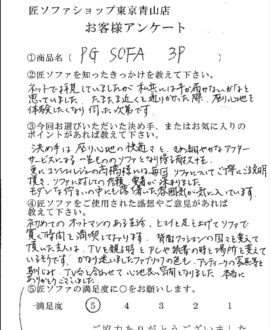 匠ソファショップ東京青山店
お客様アンケート
①商品名( PG SOFA 3P )
②匠ソファを知ったきっかけを教えて下さい。
ネットでは拝見していましたが 私共には手が届かない
思っていました。たまたま近くを通りがかった際、座り心地を
体験したくなり 伺った次第です。
③今回お選びいただいた決め手、またはお気に入りの
ポイントがあれば教えて下さい。
決め手は 座り心地の快適さと、きめ細やかなアフター
サービスによる 一生もののソファとなり得る耐久性。
更に コンシェルジュの 毎回 ソファについて ご丁寧にご説明
頂き、ソファに対しての信頼、 深まりました。
モダンな佇まいの中にも 落ち着いた雰囲気が気に入っています。
④匠ソファをご使用された感想やご意見があれば
教えて下さい。
初めてのオットマンのある生活、 足を上げてソファで
寛ぐ時間を満喫しております。背面クッションの固さを変えて
頂いた主人は、TVを観る時と 場所を変えて
いるそうです。かなり迷いましたファブリックの色も、アンティークの家具
TV台と合わせて 心地良い空間となりました。本当に
ありがとうございました。
⑤匠ソファの満足度に○をお願いします。
満足度 ⑤ 4 3 2 1
ご協力ありがとうございました